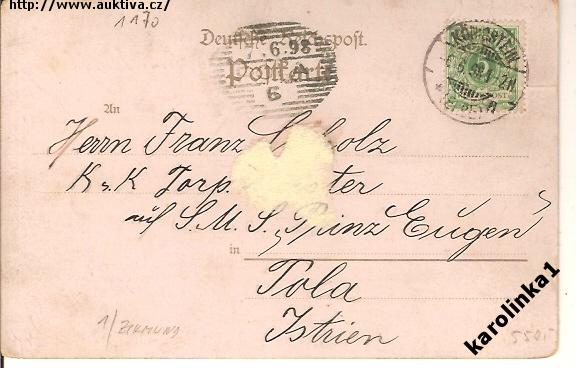 http://www.auktiva.cz/)
1170
Deutsche Reichspost.
Postkarte
6.98
6
KÖNIGSTEIN
5
An
Herrn Franz Scholz
K. u. K Torp.
auf S. M. S. Prinz Eugen
in
Pola
Istrien
1/ZIKMUND
550,-
karolinka1